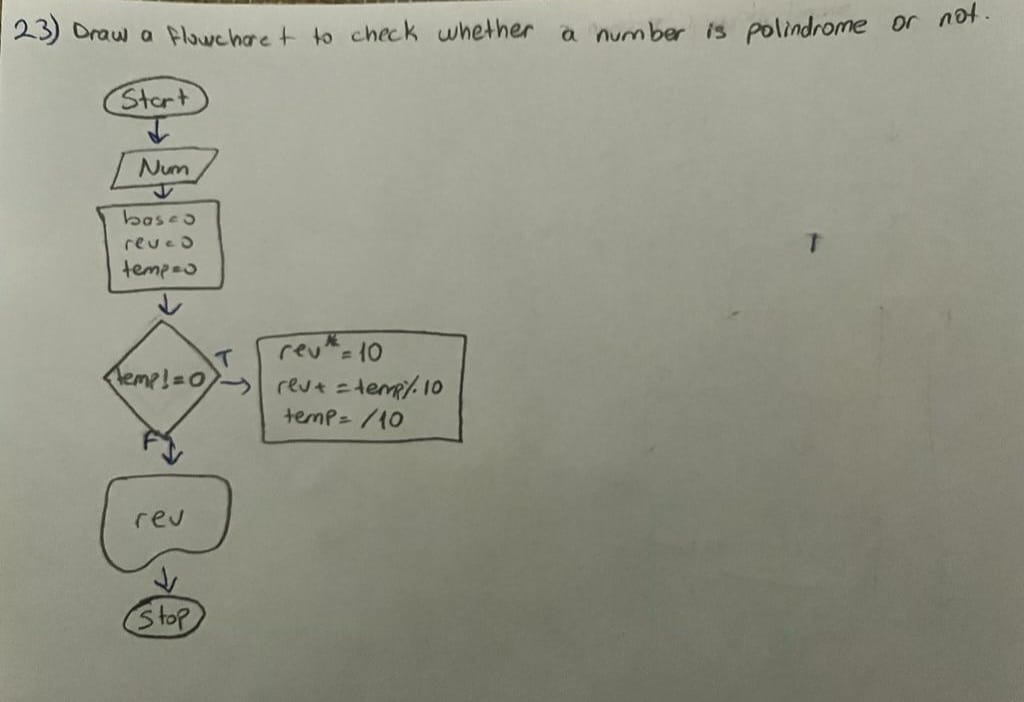 23) Draw a flowchart to check whether a number is polindrome or not.
Start
Num
bas=0
rev=0
temp=0
temp!=0
T
rev*=10
rev+=temp%10
temp=/10
F
rev
Stop
T